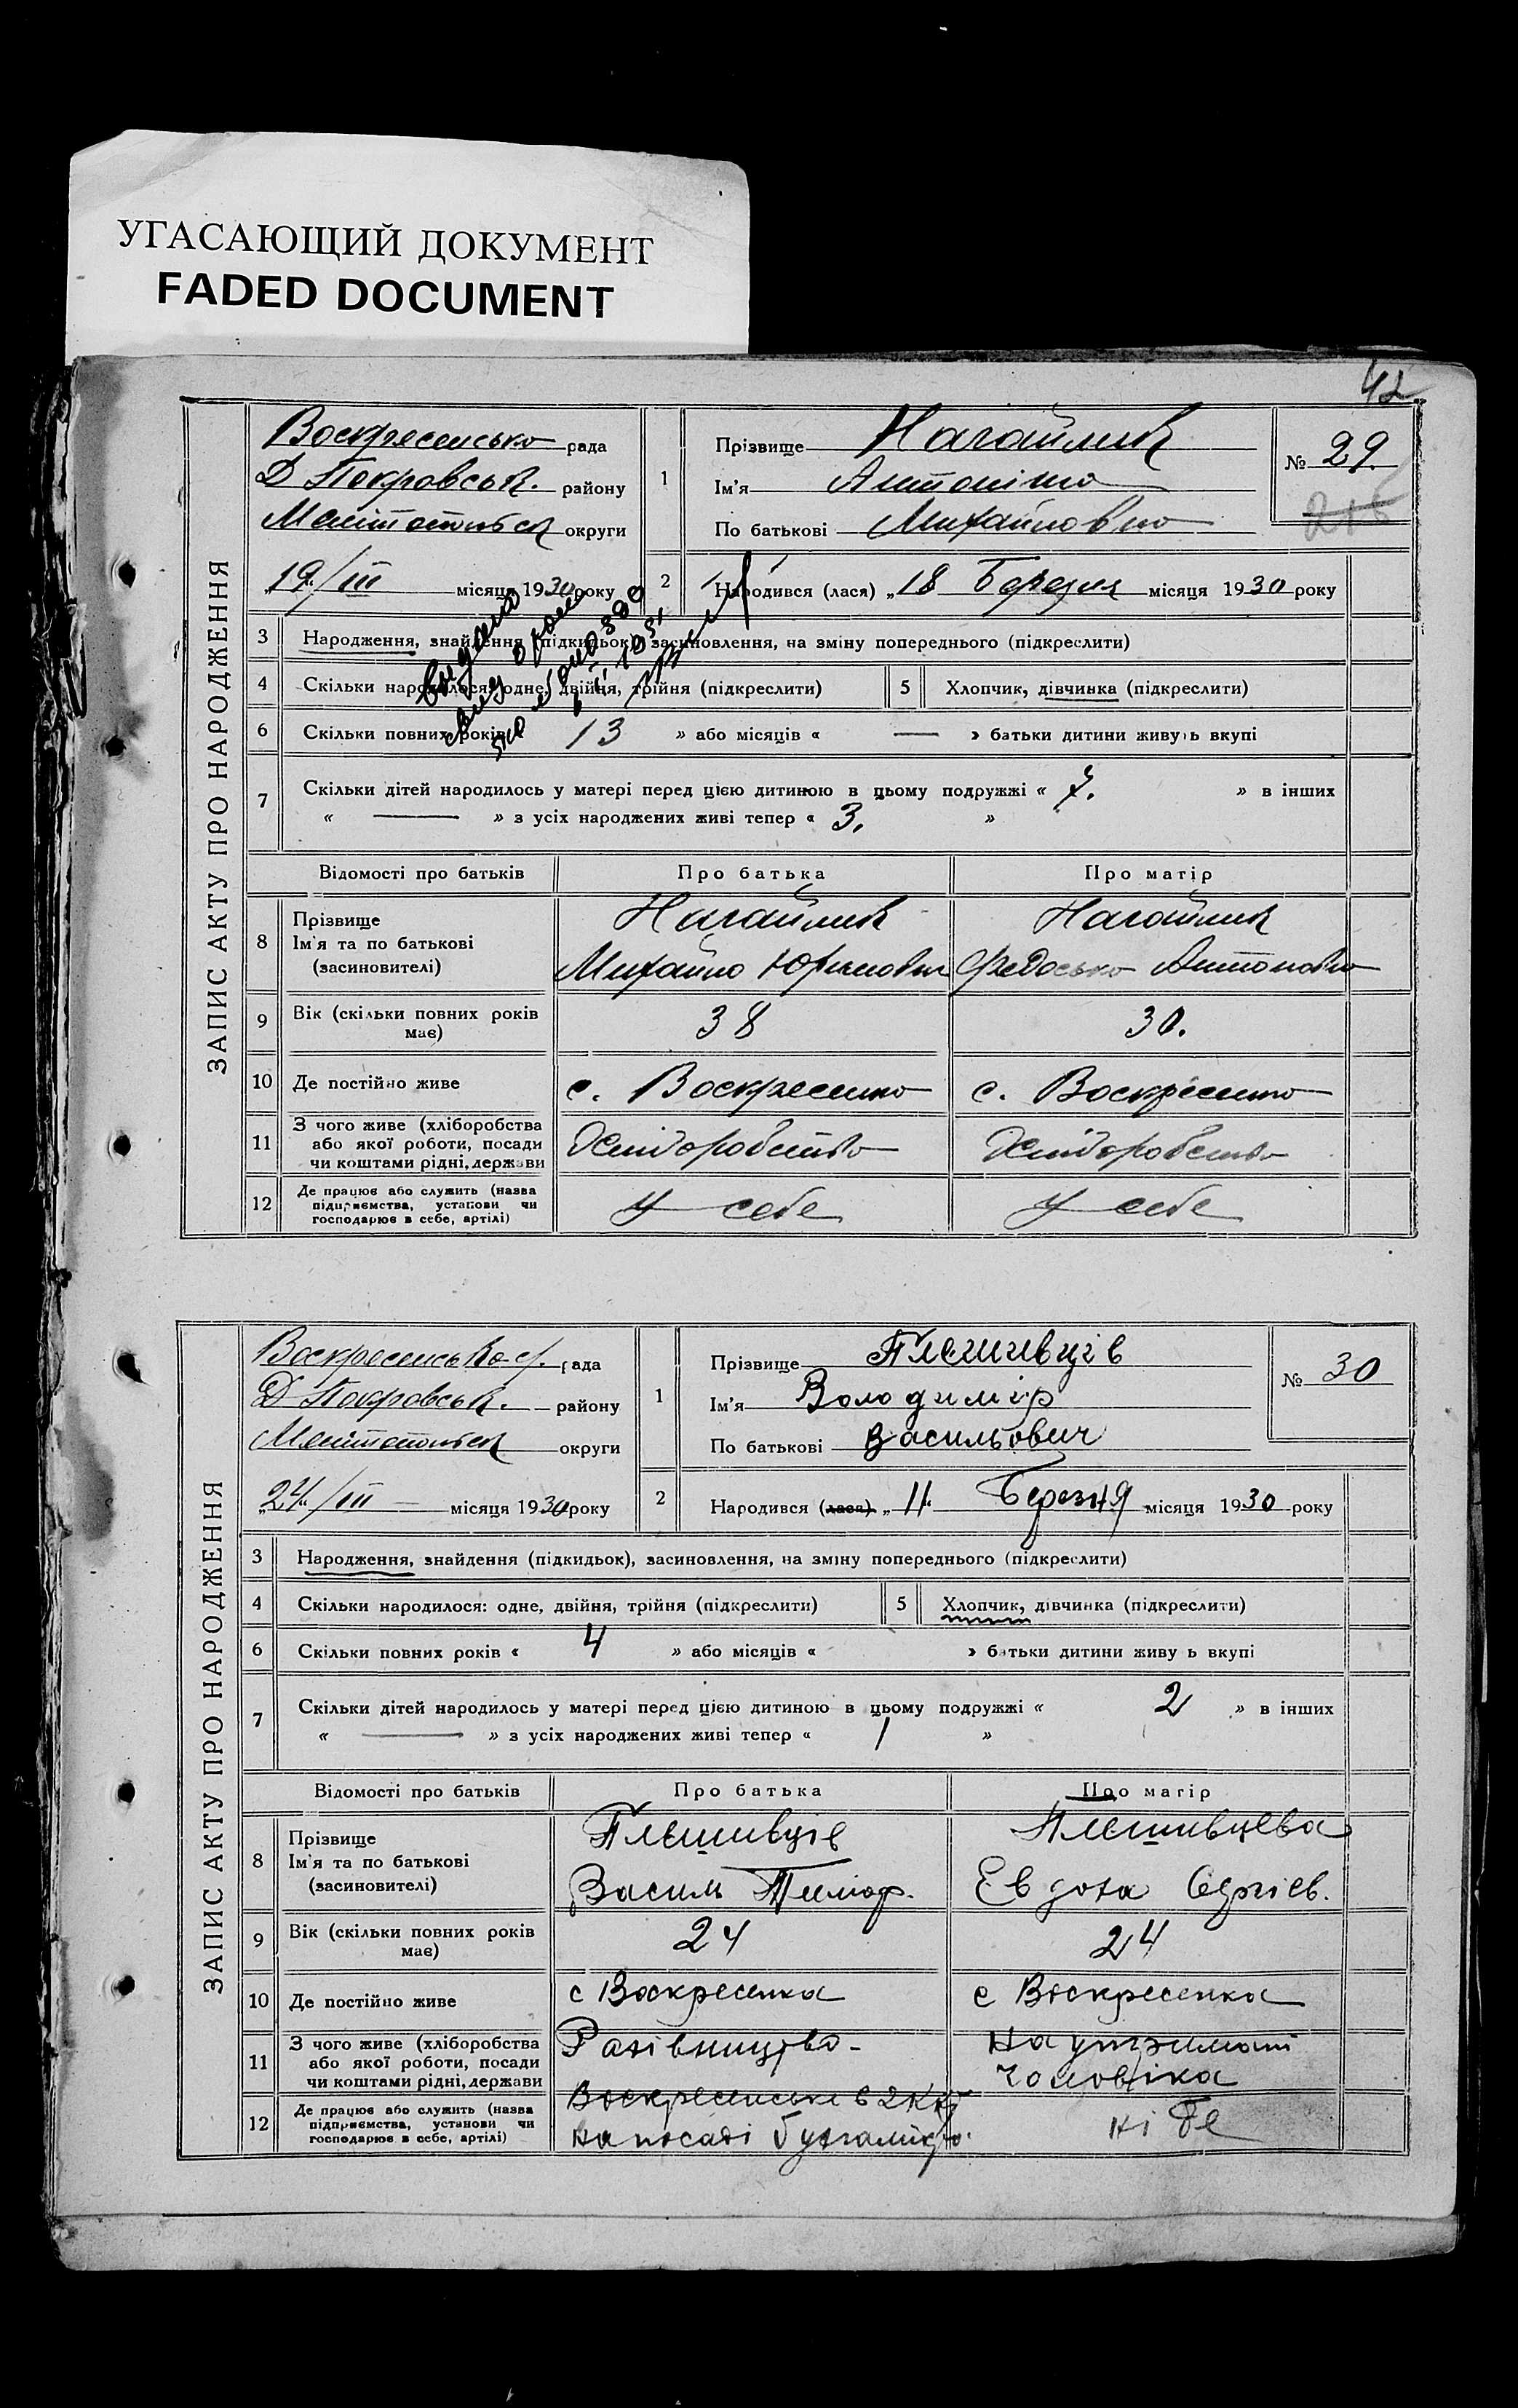 УГАСАЮЩИЙ ДОКУМЕНТ
FADED DOCUMENT
42
ЗАПИС АКТУ ПРО НАРОДЖЕННЯ
Воскресенсько рада
Д Покровськ. району
Мелітопольск округи
"19"/III місяця 1930 року
1 Прізвище Нагайлик
Ім'я Антоніно
По батькові Михайловно
№ 29.
2 Народився (лася) „18 Березня місяця 1930 року
3 Народження, знайдення (підкидьок), засиновлення, на зміну попереднього (підкреслити)
4 Скільки народилося: одне, двійня, трійня (підкреслити) 5 Хлопчик, дівчинка (підкреслити)
6 Скільки повних років « 13 » або місяців « — » батьки дитини живуть вкупі
7 Скільки дітей народилось у матері перед цією дитиною в цьому подружжі « » в інших
« — » з усіх народжених живі тепер « 3. »
Відомості про батьків Про батька Про матір
8 Прізвище Ім'я та по батькові (засновителі)
Нагайлик Нагайлик
Михайло Юхимович Федосько Антоновно
9 Вік (скільки повних років має) 38 30.
10 Де постійно живе с. Воскресенко с. Воскресенко
11 З чого живе (хліборобства або якої роботи, посади чи коштами рідні, держави Хліборобство Хліборобство
12 Де працює або служить (назва підприємства, установи чи господарює в себе, артілі) У себе У себе
ЗАПИС АКТУ ПРО НАРОДЖЕННЯ
Воскресенсько с. рада
Д Покровськ. району
Мелітопольск округи
„24"/III місяця 1930 року
1 Прізвище Плешивців
Ім'я Володимір
По батькові Васильович
№ 30
2 Народився (лася) „11" Березня місяця 1930 року
3 Народження, знайдення (підкидьок), засиновлення, на зміну попереднього (підкреслити)
4 Скільки народилося: одне, двійня, трійня (підкреслити) 5 Хлопчик, дівчинка (підкреслити)
6 Скільки повних років « 4 » або місяців « » батьки дитини живуть вкупі
7 Скільки дітей народилось у матері перед цією дитиною в цьому подружжі « 2 » в інших
« — » з усіх народжених живі тепер « 1 »
Відомості про батьків Про батька Про матір
8 Прізвище Ім'я та по батькові (засиновителі)
Плешивців Плешивцева
Василь Тимоф. Евдоха Сергієв.
9 Вік (скільки повних років має) 24 24
10 Де постійно живе с Воскресенка с Воскресенка
11 З чого живе (хліборобства або якої роботи, посади чи коштами рідні, держави Рахівництво- На утримані чоловіка
12 Де працює або служить (назва підприємства, установи чи господарює в себе, артілі) Воскресенське в на посаді ні де